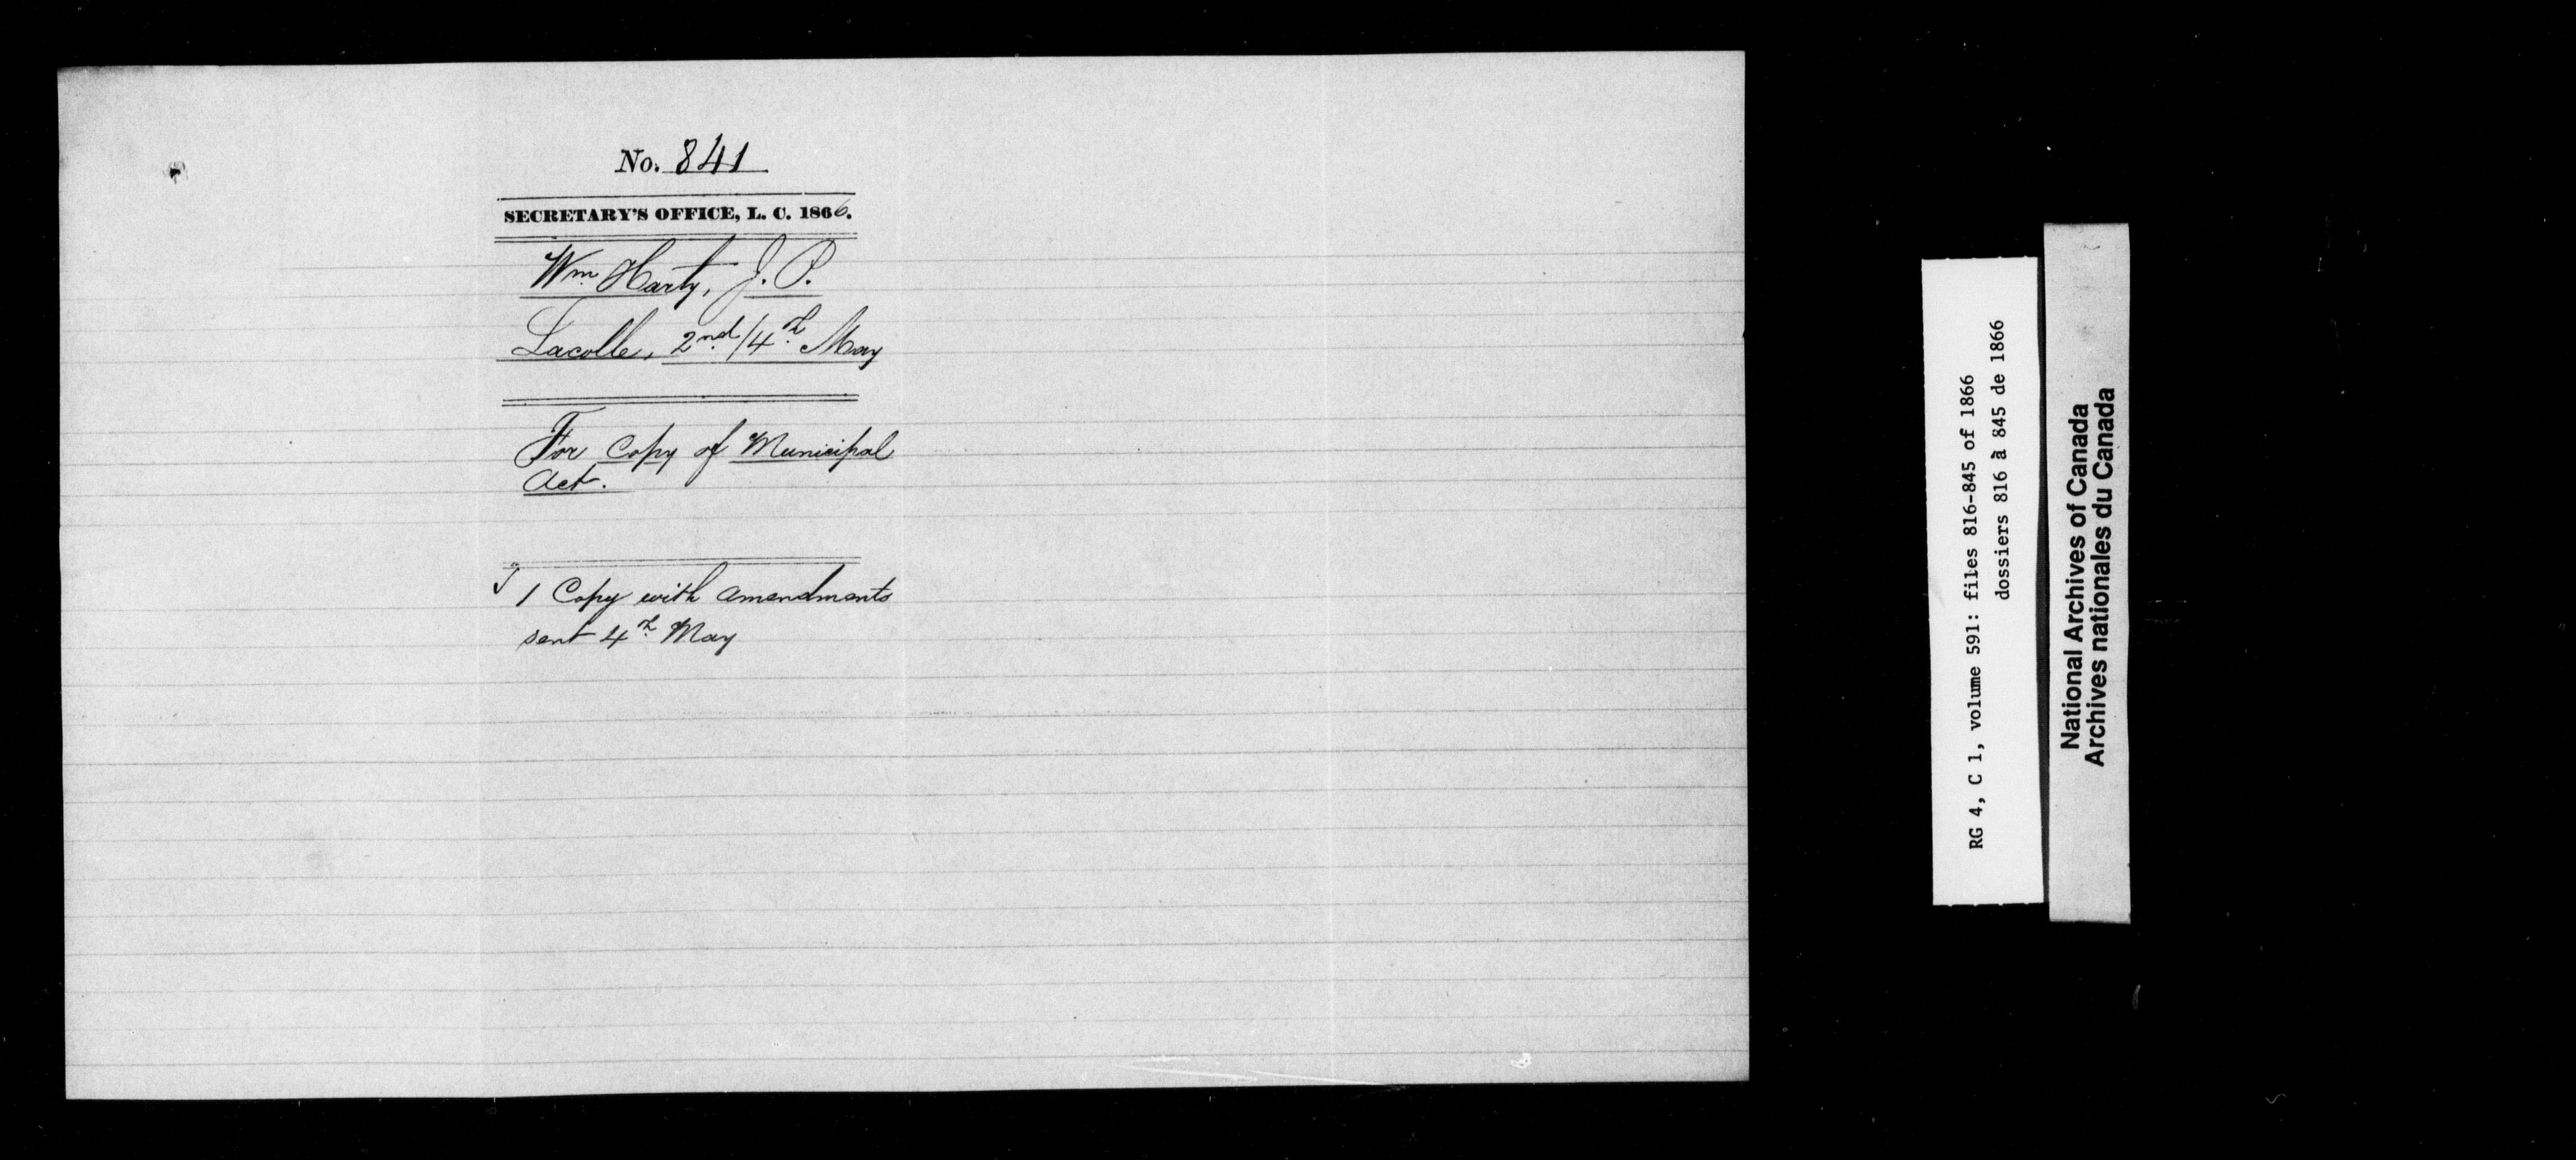 No. 841
SECRETARY'S OFFICE, L. C. 1866.
Wm. Harty, J. P.
Lacolle, 2nd/4th May
For Copy of Municipal
Act.
✓ 1 Copy with amendments
sent 4th May
RG 4, C 1, volume 591: files 816-845 of 1866
dossiers 816 à 845 de 1866
National Archives of Canada
Archives nationales du Canada